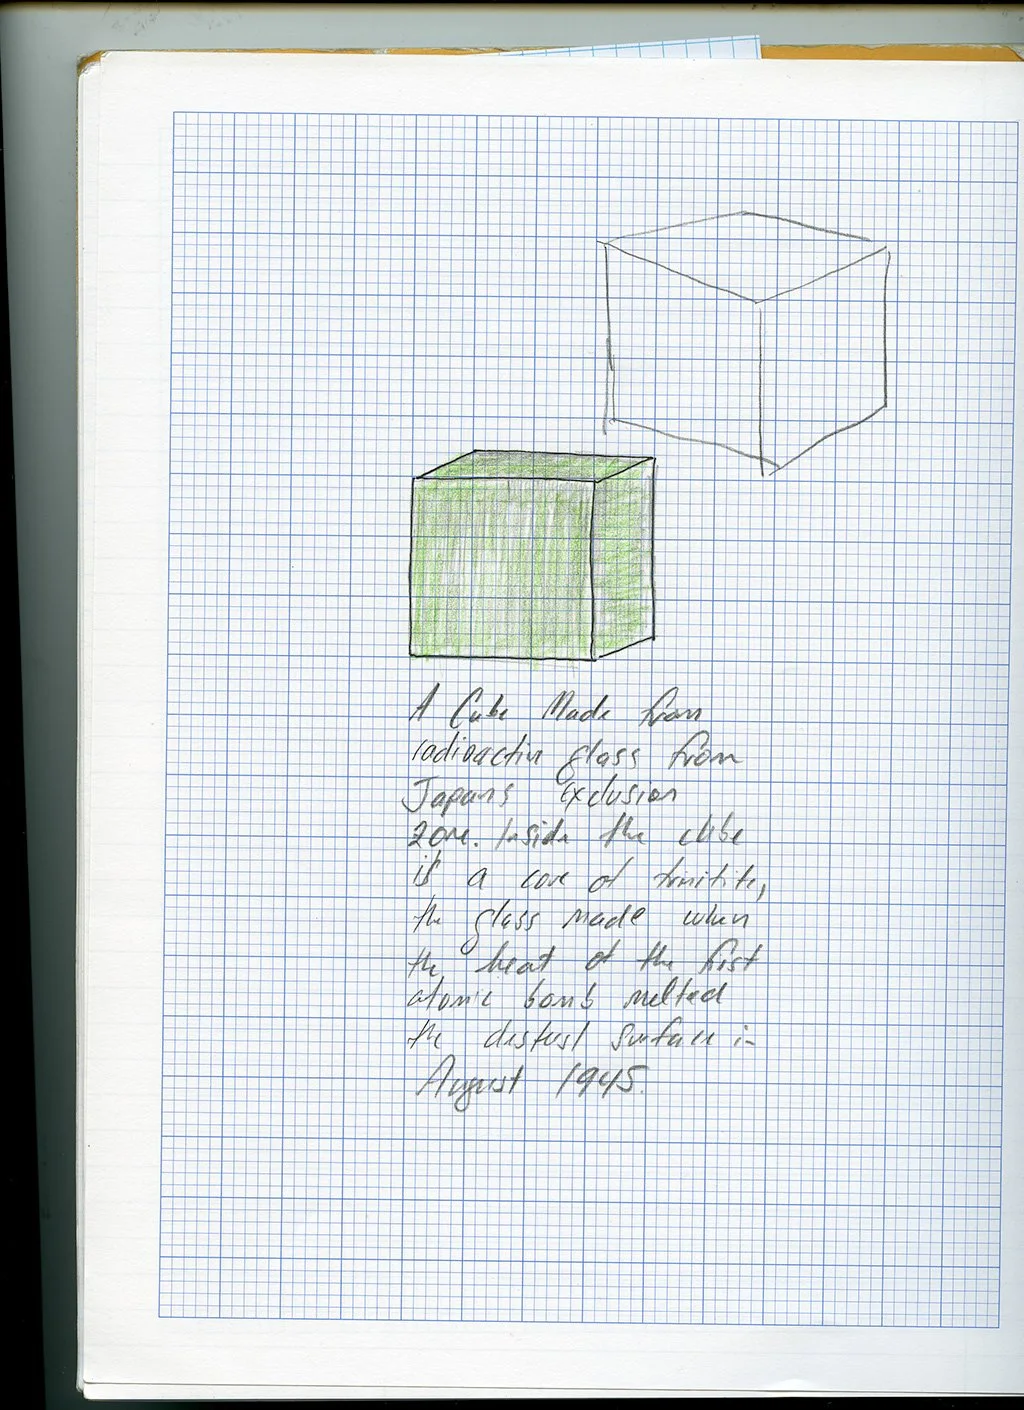 A Cube Made from
radioactive glass from
Japans Exclusion
Zone. Inside the cube
is a core of trinitite,
the glass made when
the heat of the first
atomic bomb melted
the desert surface in
August 1945.